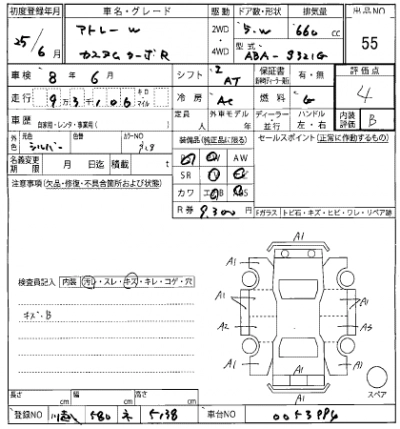 初度登録年月 車名・グレード 駆動 ドア数・形状 排気量 出品NO
25/6月 アトレーW カスタムターボR 2WD・4WD 5.W 660cc 55
型式 ABA-S321G
車検 8年6月 シフト AT 保証書 有・無 評価点
走行 93,106 キロ マイル 冷房 AC 燃料 G 4
車歴 自家用・レンタ・事業用( ) 定員 人 外車モデル 年 ディーラー 並行 ハンドル 左・右 内装評価 B
外色 元色 シルバー 色替 カラーNO 装備品(純正品に限る) セールスポイント(正常に作動するもの)
AW
名義変更期限 月 日迄 積載 t SR
カワ
注意事項(欠品・修復・不具合箇所および状態) R券 9,300円
Fガラス トビ石・キズ・ヒビ・ワレ・リペア跡
A1
A1 A1
検査員記入 内装 汚レ・スレ・キズ・キレ・コゲ・穴
A1 A1
キズ.B A2
A1 A1
A1
スペア
長さ cm 幅 cm 高さ cm
登録NO 580 車台NO